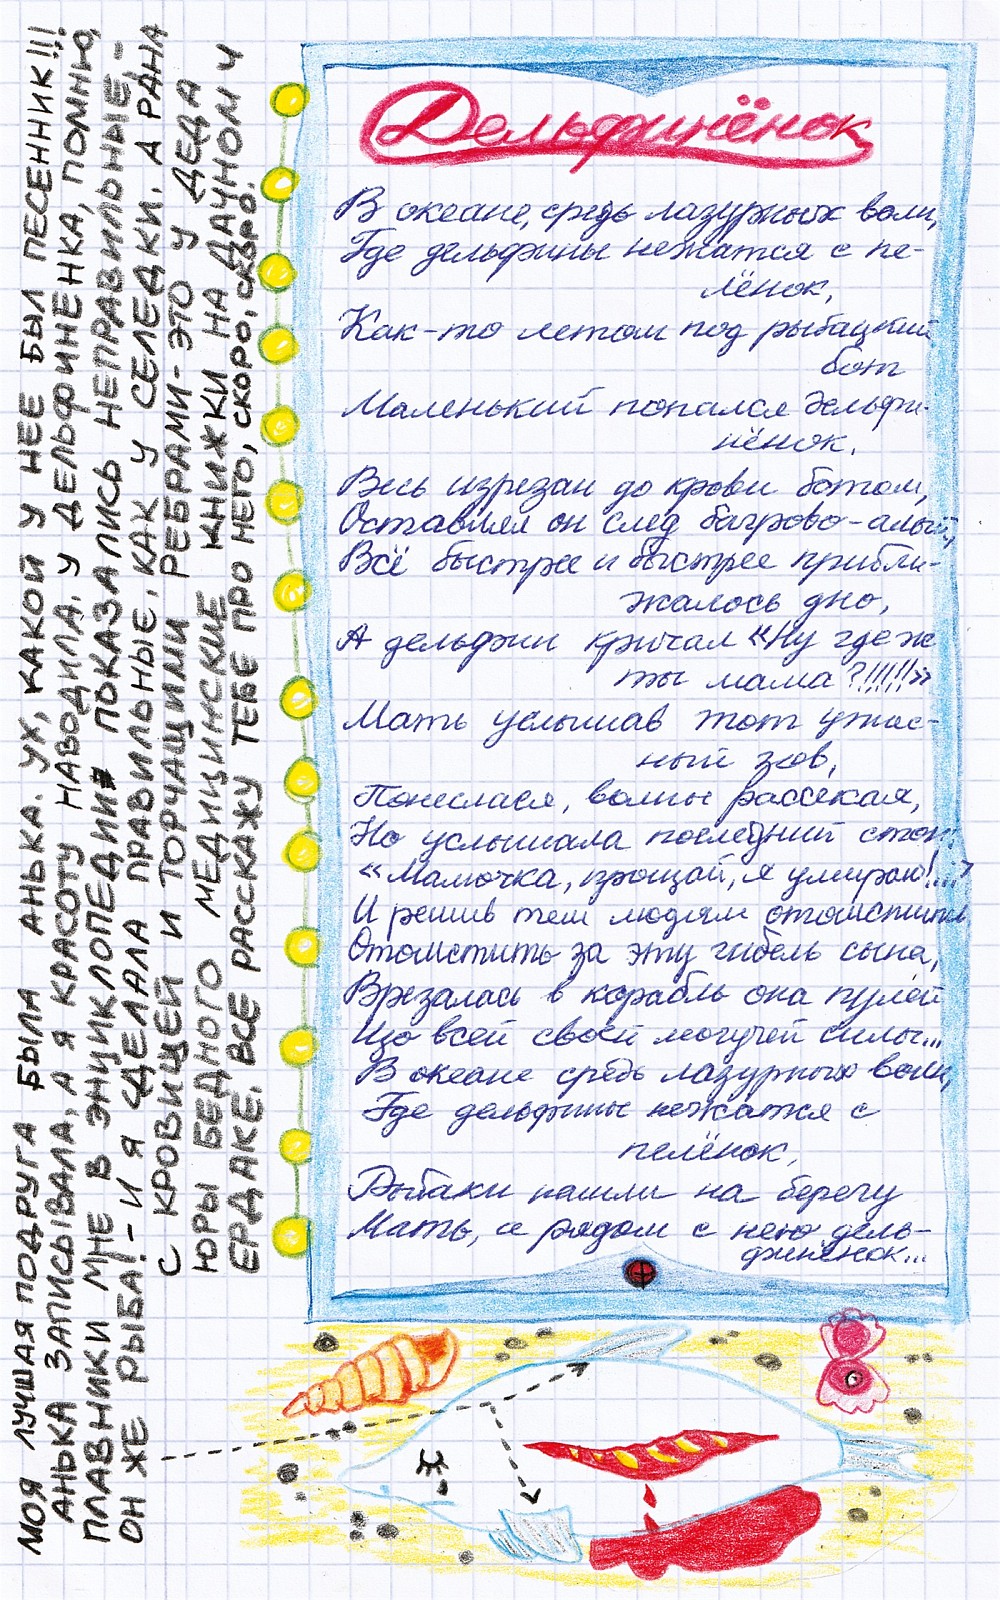 МОЯ ЛУЧШАЯ ПОДРУГА БЫЛА АНЬКА. УХ, КАКОЙ У НЕЕ БЫЛ ПЕСЕННИК!!!
АНЬКА ЗАПИСЫВАЛА, А Я КРАСОТУ НАВОДИЛА. У ДЕЛЬФИНЕНКА, ПОМНЮ,
ПЛАВНИКИ МНЕ В ЭНЦИКЛОПЕДИИ ПОКАЗАЛИСЬ НЕПРАВИЛЬНЫЕ, -
ОН ЖЕ РЫБА! - И Я СДЕЛАЛА ПРАВИЛЬНЫЕ, КАК У СЕЛЕДКИ. А РАНА
С КРОВИЩЕЙ И ТОРЧАЩИМИ РЕБРАМИ - ЭТО У ДЕДА
ЮРЫ БЕДНОГО МЕДИЦИНСКИЕ КНИЖКИ НА ДАЧНОМ Ч
ЕРДАКЕ. ВСЕ РАССКАЖУ ТЕБЕ ПРО НЕГО, СКОРО, СКОРО.
Дельфинёнок
В океане, средь лазурных волн,
Где дельфины нежатся с пе-
лёнок,
Как-то летом под рыбацкий
бот
Маленький попался дельфи-
нёнок.
Весь изрезан до крови ботом,
Оставлял он след багрово-алый,
Всё быстрее и быстрее прибли-
жалось дно,
А дельфин кричал «Ну где ж
ты мама?!!!!!»
Мать услышав тот ужас-
ный зов,
Понеслася, волны рассекая,
Но услышала последний стон:
«Мамочка, прощай, я умираю!...»
И решив тем людям отомстить
Отомстить за эту гибель сына,
Врезалась в корабль она пулей
Изо всей своей могучей силы...
В океане средь лазурных волн,
Где дельфины нежатся с
пелёнок,
Рыбаки нашли на берегу
Мать, а рядом с нею дель-
финёнок...